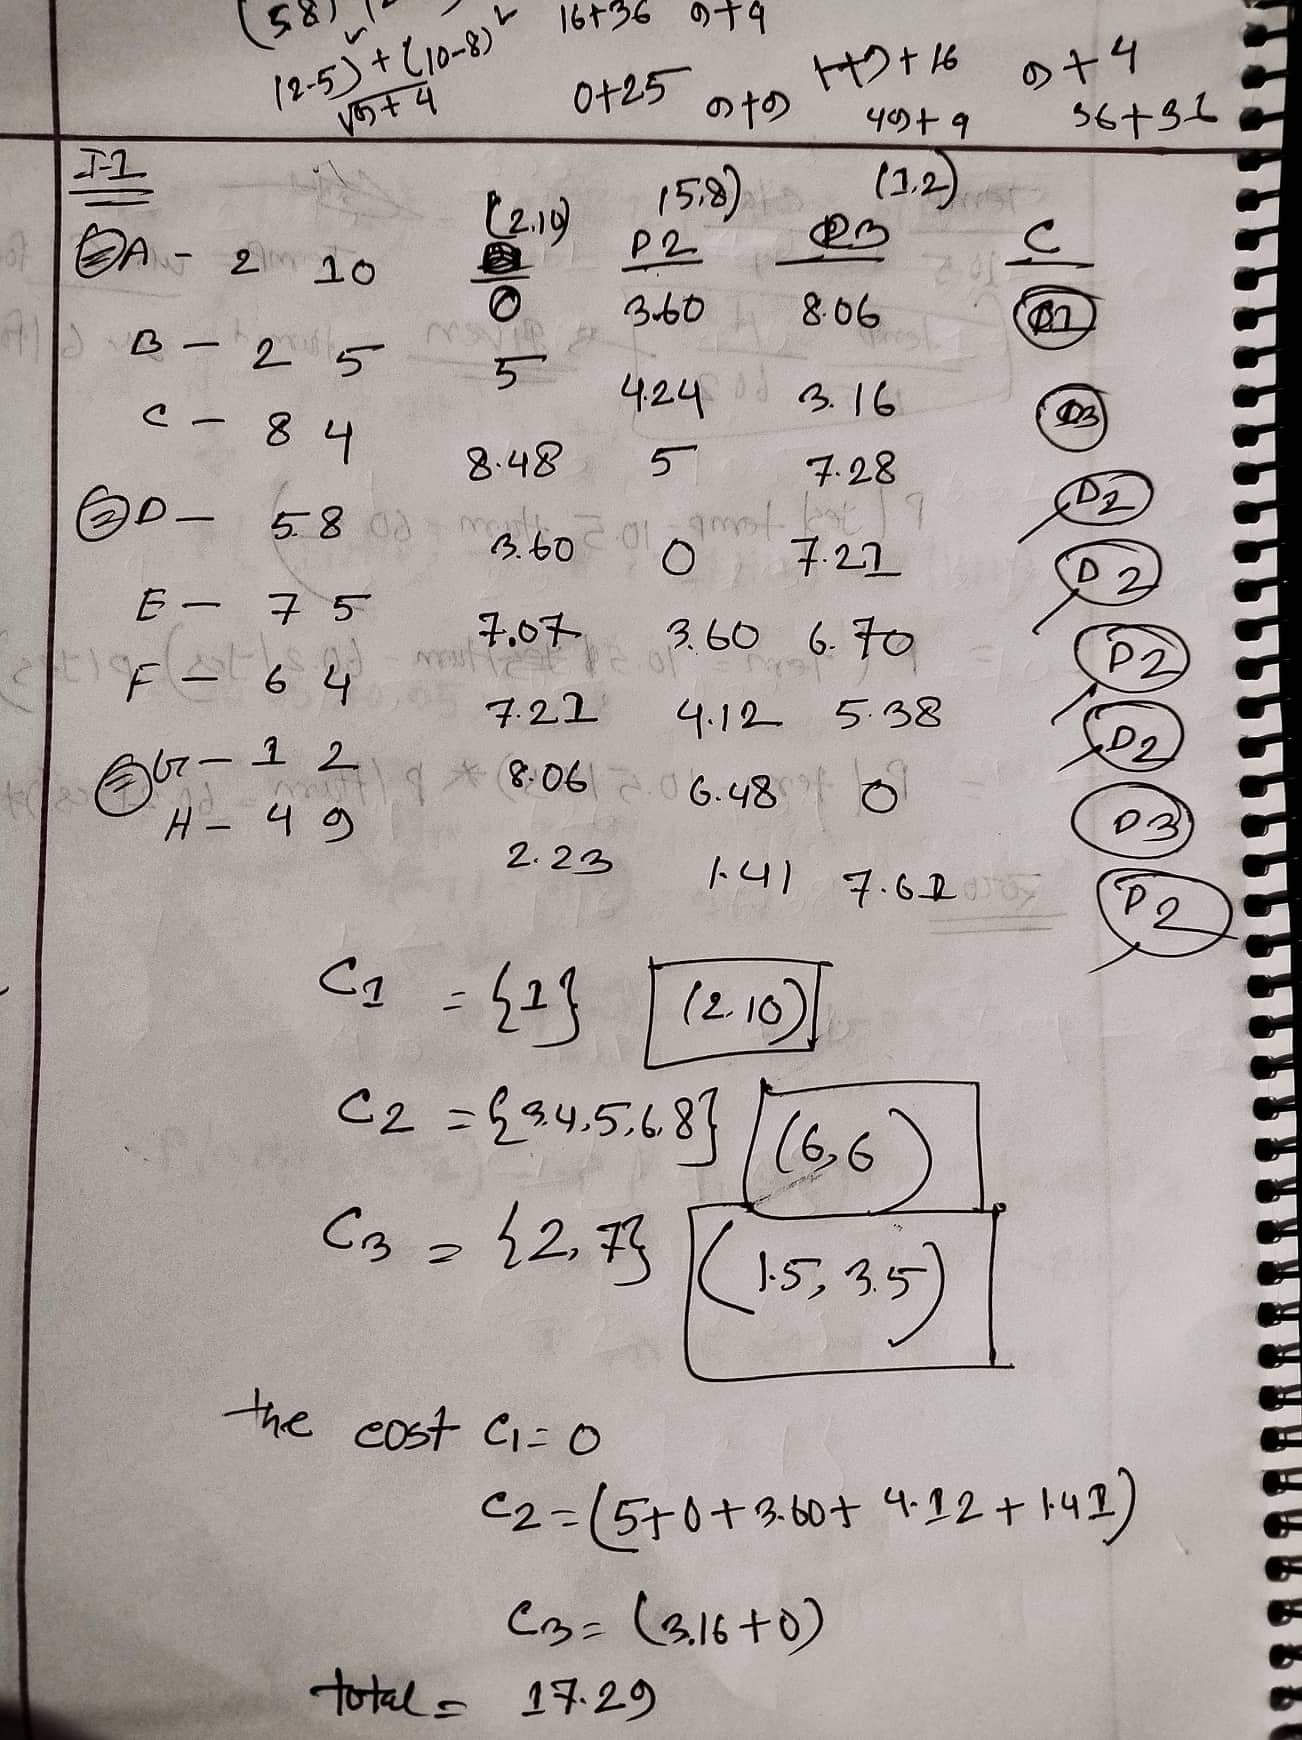 (58)
(2-5)² + (10-8)²
√9+4
16+36 9+9
0+25 9+9
1+9+16
49+9
9+4
36+36
I-1
(2.10) (5.8) (1.2)
D2 D3 C
A - 2 10 0 3.60 8.06 D1
B - 2 5 5 4.24 3.16 D3
C - 8 4 8.48 5 7.28 D2
D - 5.8 3.60 0 7.21 D2
E - 7 5 7.07 3.60 6.70 D2
F - 6 4 7.21 4.12 5.38 D2
G - 1 2 8.06 6.48 0 D3
H - 4 9 2.23 1.41 7.61 D2
C1 = {1} (2.10)
C2 = {3.4,5,6,8} (6,6)
C3 = {2,7} (1.5, 3.5)
the cost C1=0
C2=(5+0+3.60+4.12+1.41)
C3=(3.16+0)
total = 17.29